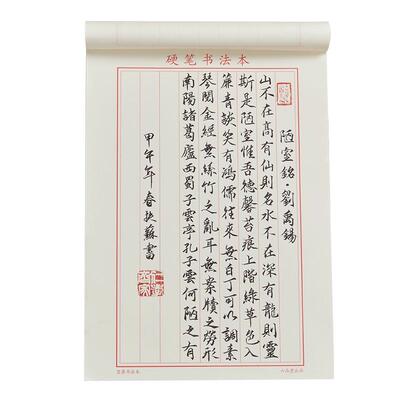 硬笔书法本
陋室銘·劉禹錫
山不在高有仙則名水不在深有龍則靈
斯是陋室惟吾德馨苔痕上階綠草色入
簾青談笑有鴻儒往來無白丁可以調素
琴閱金經無絲竹之亂耳無案牘之勞形
南陽諸葛廬西蜀子雲亭孔子雲何陋之有
甲午年春振蘇書